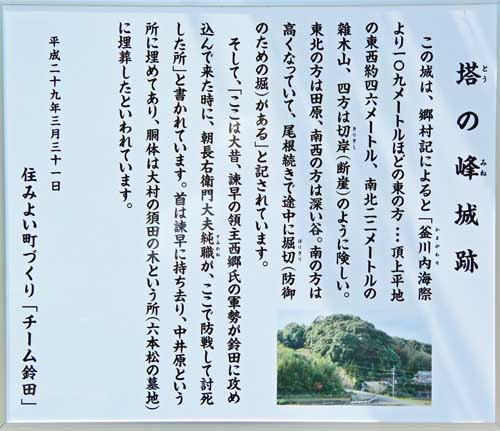 塔の峰城跡
この城は、郷村記によると「釜川内海際
より一〇九メートルほどの東の方…頂上平地
の東西約四六メートル、南北二二メートルの
雑木山、四方は切岸(断崖)のように険しい。
東北の方は田原、南西の方は深い谷。南の方は
高くなっていて、尾根続きで途中に堀切(防御
のための堀)がある」と記されています。
そして、「ここは大昔、諫早の領主西郷氏の軍勢が鈴田に攻め
込んで来た時に、朝長右衛門大夫純職が、ここで防戦して討死
した所」と書かれています。首は諫早に持ち去り、中井原という
所に埋めてあり、胴体は大村の須田の木という所(六本松の墓地)
に埋葬したといわれています。
平成二十九年三月三十一日
住みよい町づくり「チーム鈴田」